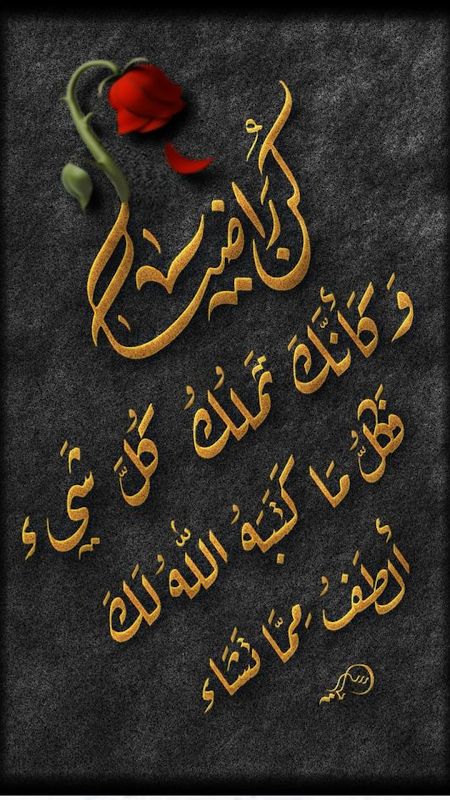 كُن رَاضيا
وَ كَأنَّكَ تَملُكُ كُلَّ شَيء
فَكُلُّ مَا كَتَبَهُ اللهُ لَكَ
ألطَفُ مِمَّا تَشَاء